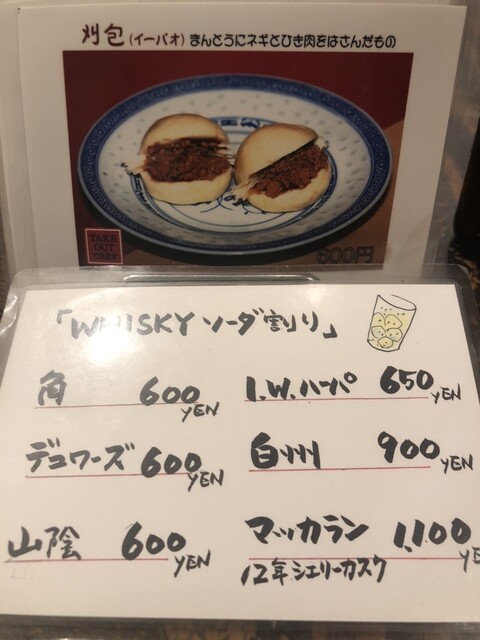 刈包(イーパオ)まんとうにネギとひき肉をはさんだもの
TAKE
OUT
できます
600円
「WHISKY ソーダ割り」
角 600 YEN
I.W.ハーパ 650 YEN
デュワーズ 600 YEN
白州 900 YEN
山陰 600 YEN
マッカラン 1,100 YE
12年シェリーカスク